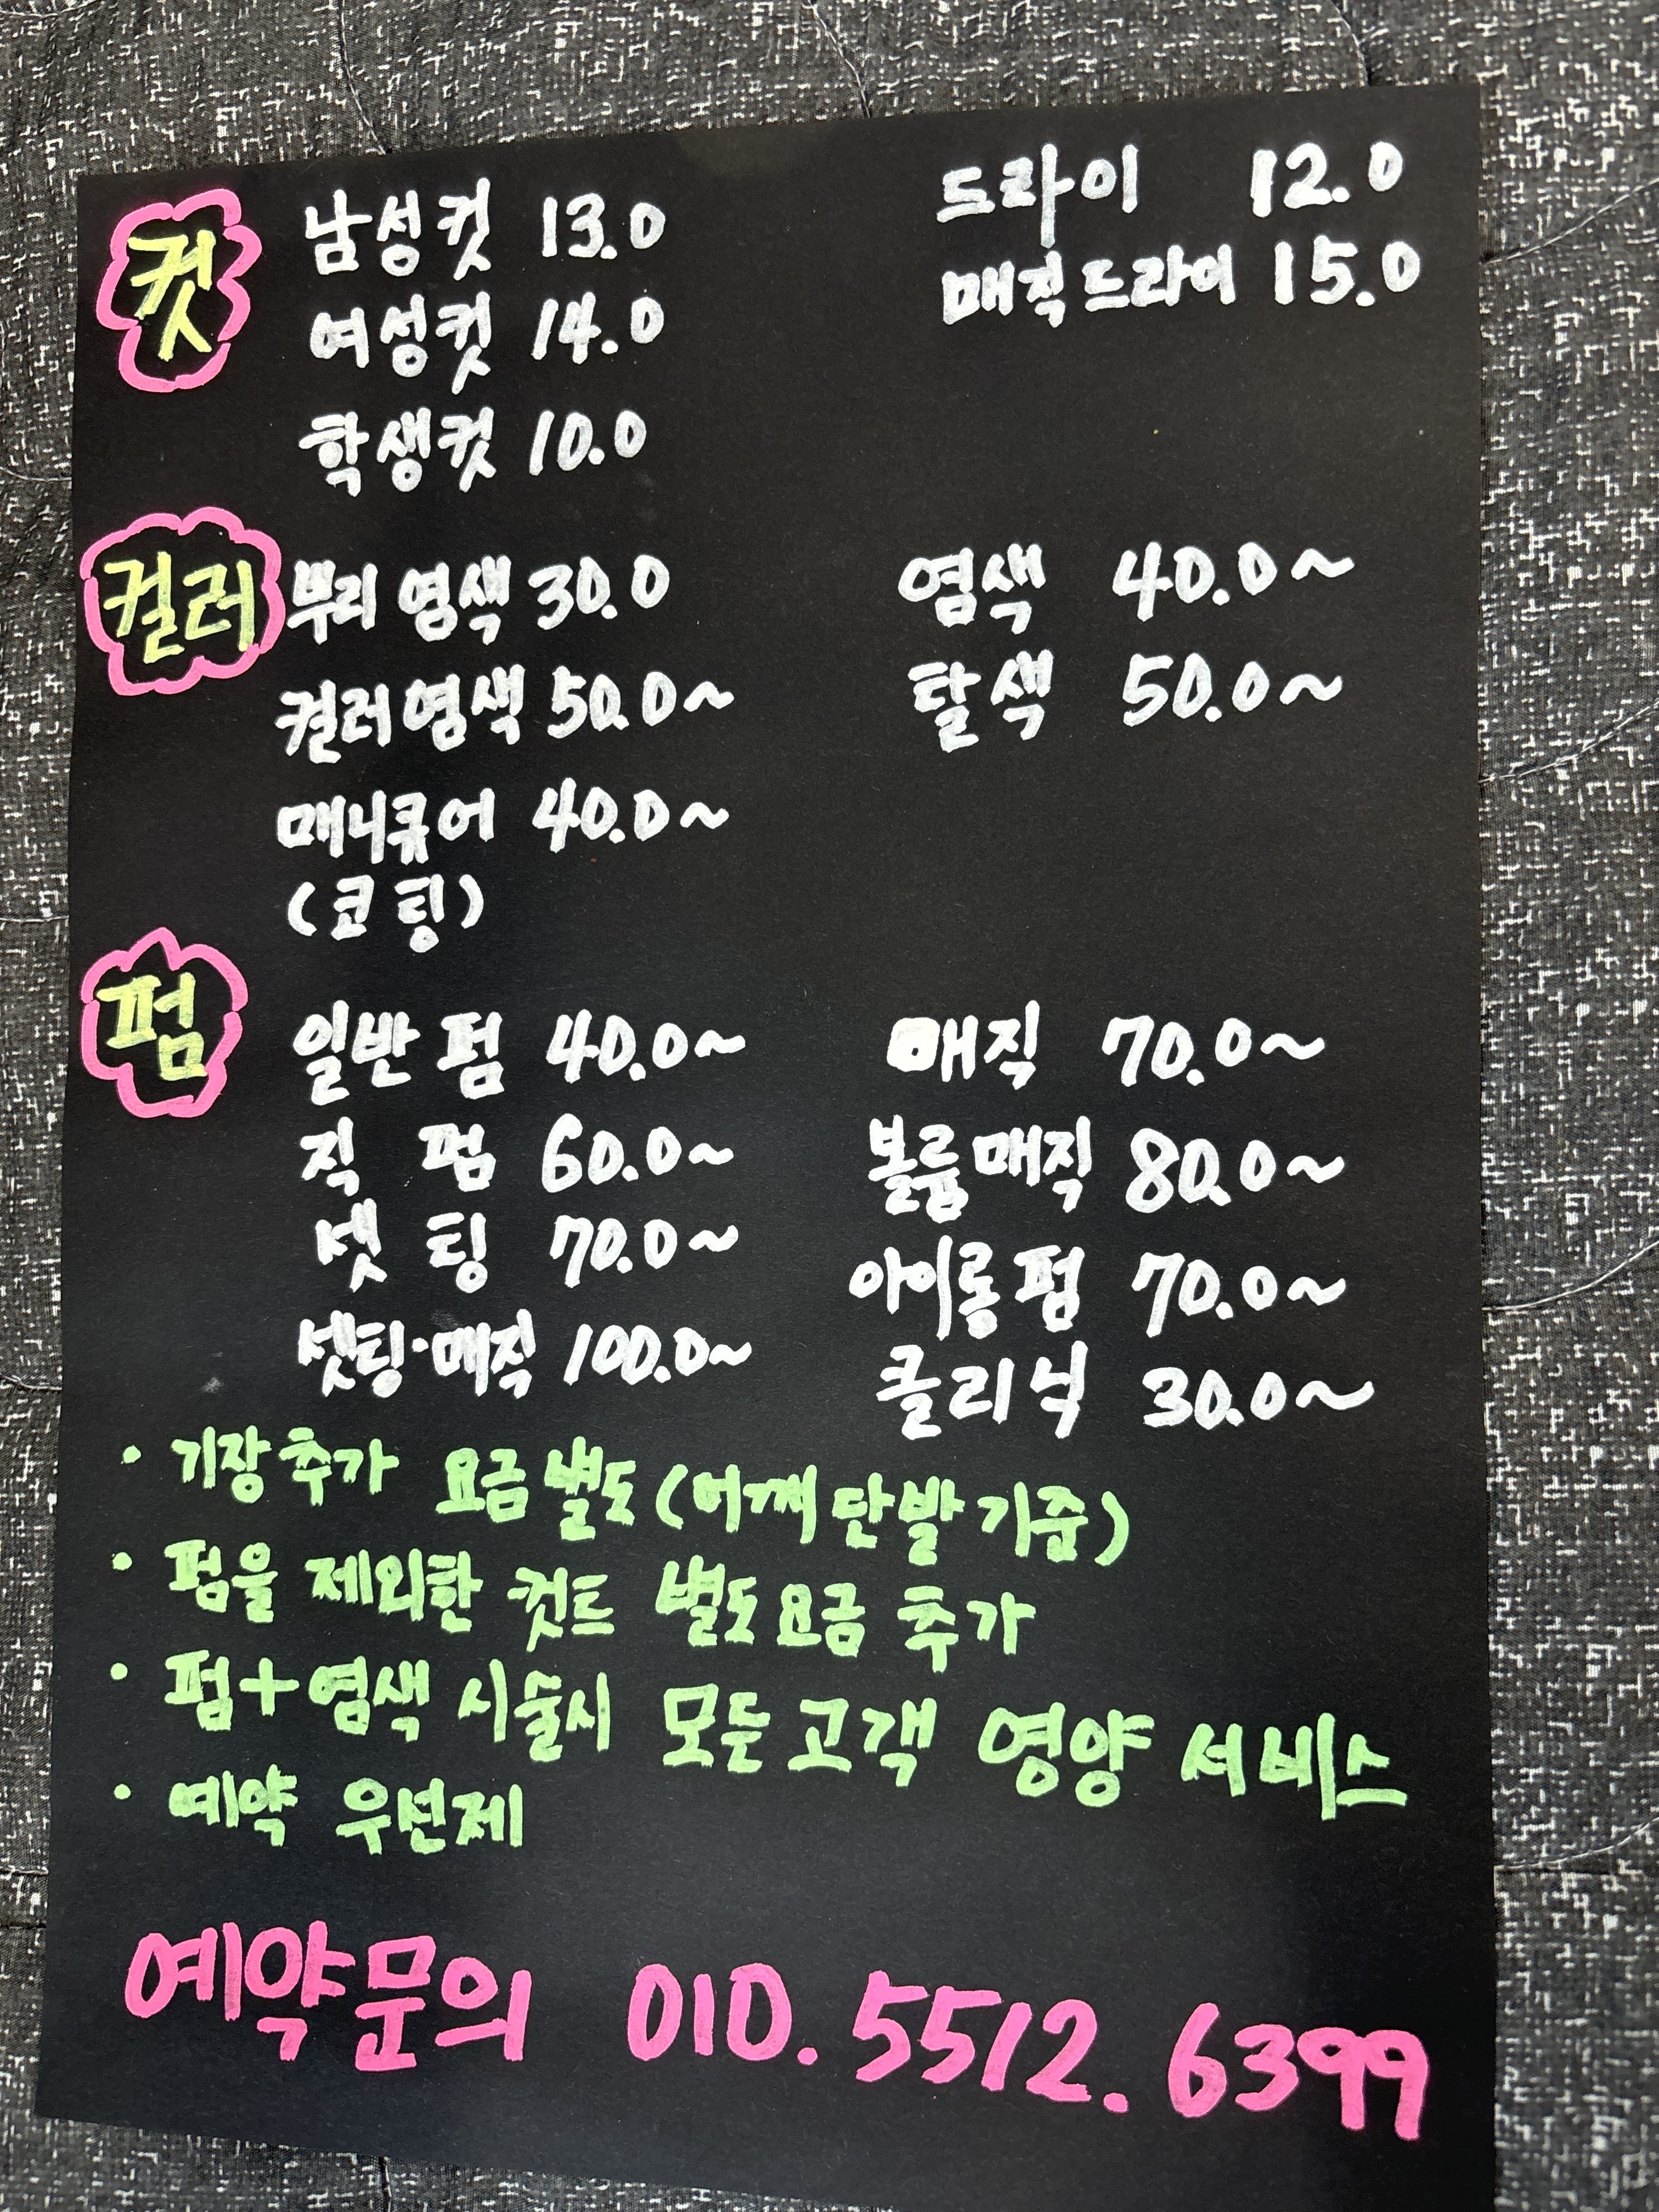 컷 남성컷 13.0 드라이 12.0
여성컷 14.0 매직드라이 15.0
학생컷 10.0
컬러 뿌리염색 30.0 염색 40.0~
컬러염색 50.0~ 탈색 50.0~
매니큐어 40.0~
(코팅)
펌 일반펌 40.0~ 매직 70.0~
직 펌 60.0~ 볼륨매직 80.0~
셋 팅 70.0~ 아이롱펌 70.0~
셋팅·매직 100.0~ 클리닉 30.0~
· 기장추가 요금별도(어깨단발기준)
· 펌을 제외한 컷트 별도요금 추가
· 펌+염색 시술시 모든고객 영양 서비스
· 예약 우선제
예약문의 010. 5512. 6399